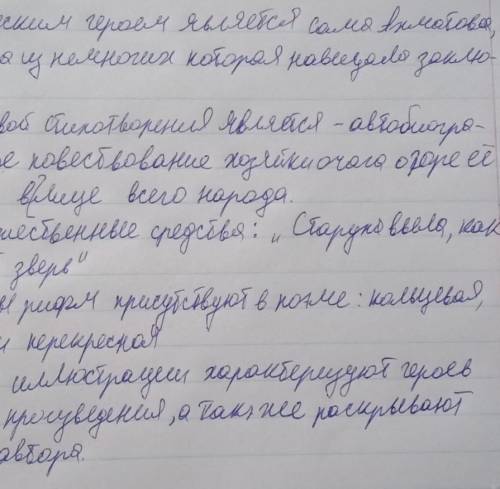 ским героем является сама Ахматова,
а из немногих которая навещала заклю-
стихотворения является - автобиогра-
ое повествование хозяйки очага о горе её
в лице всего народа.
ественные средства: „Старуха выла, как
зверь"
ы рифм присутствуют в поэме: кольцевая,
и перекрёсная
иллюстрации характеризуют героев
произведения, а также раскрывают
автора.